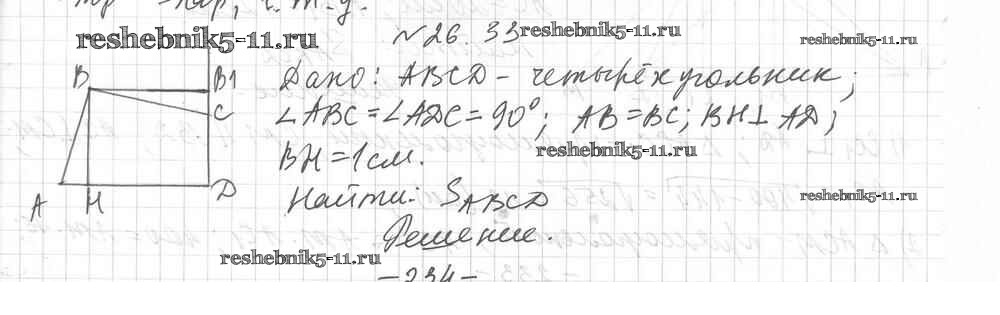 кар, ч. т. д.
reshebnik5-11.ru
№26.33 reshebnik5-11.ru
reshebnik5-11.ru
B B1 Дано: ABCD - четырёхугольник;
C ∠ABC = ∠ADC = 90°; AB = BC; BH ⊥ AD;
BH = 1 см. reshebnik5-11.ru
A H D Найти: S ABCD reshebnik5-11.ru
Решение.
reshebnik5-11.ru
- 234 -